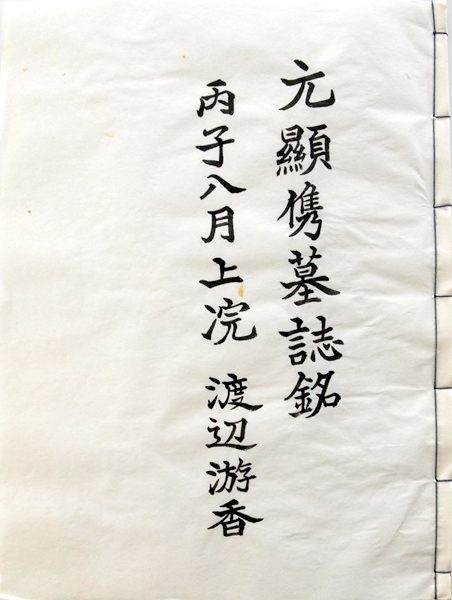 元顯儁墓誌銘
丙子八月上浣 渡辺游香